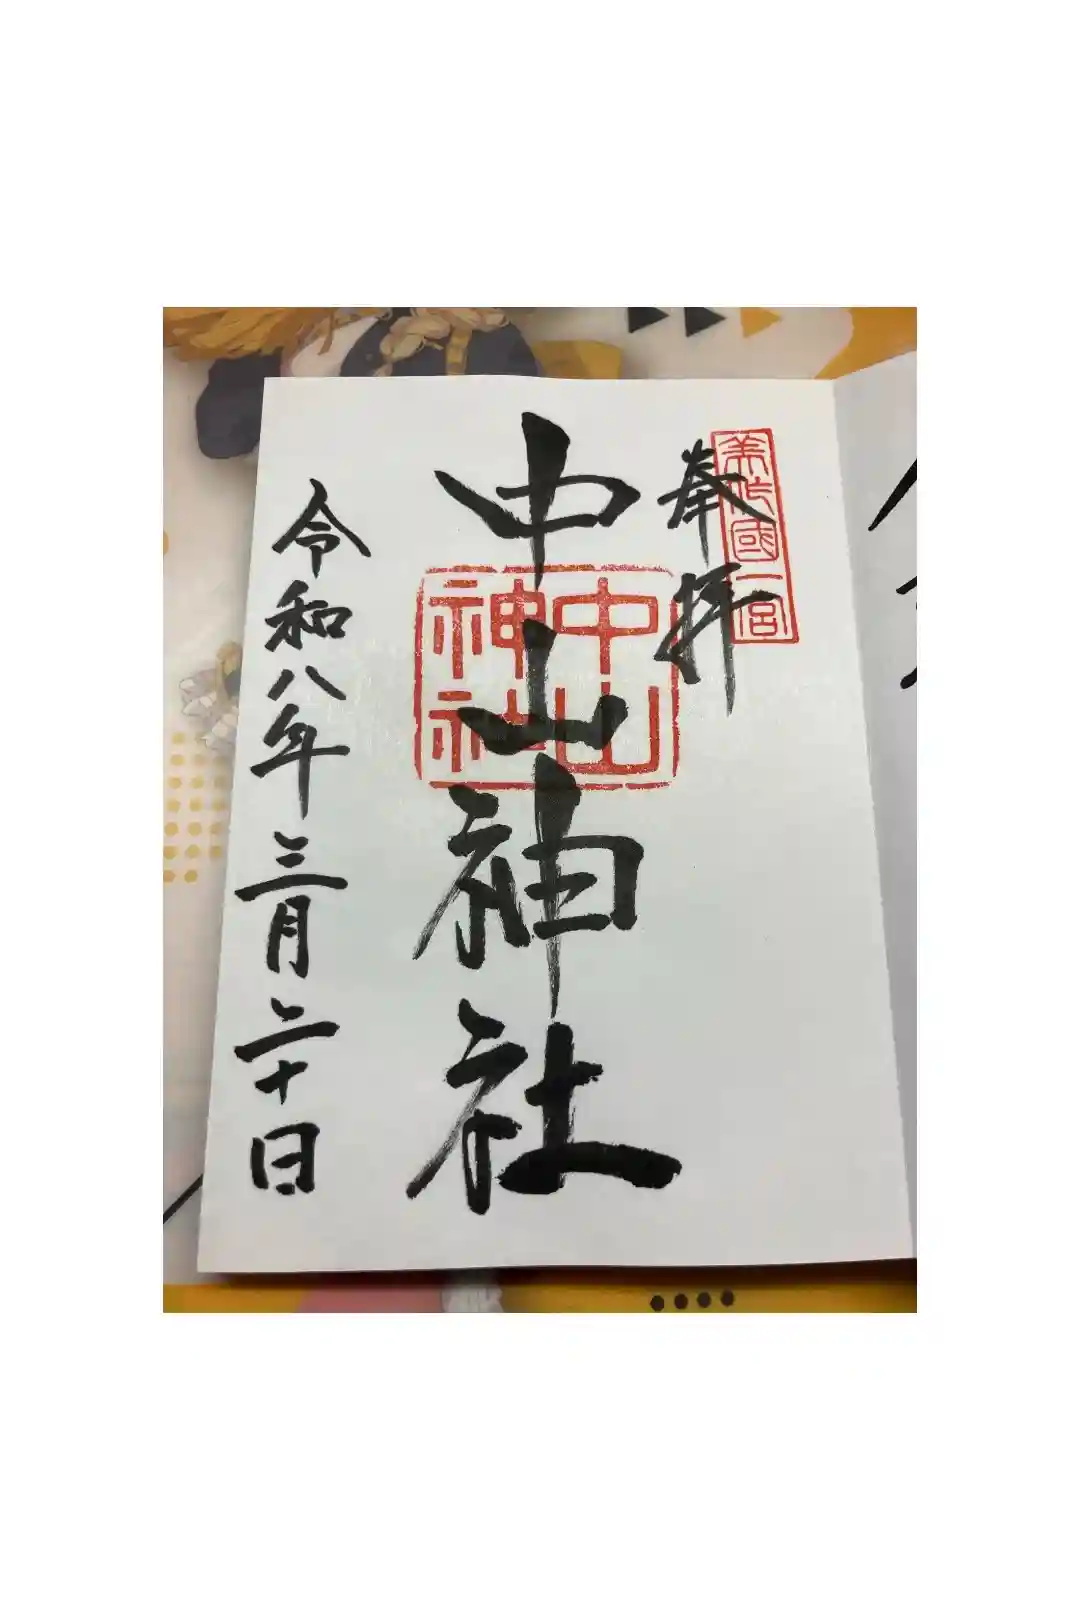 奉拝
美作國一宮
中山神社
中山神社
令和八年三月二十日